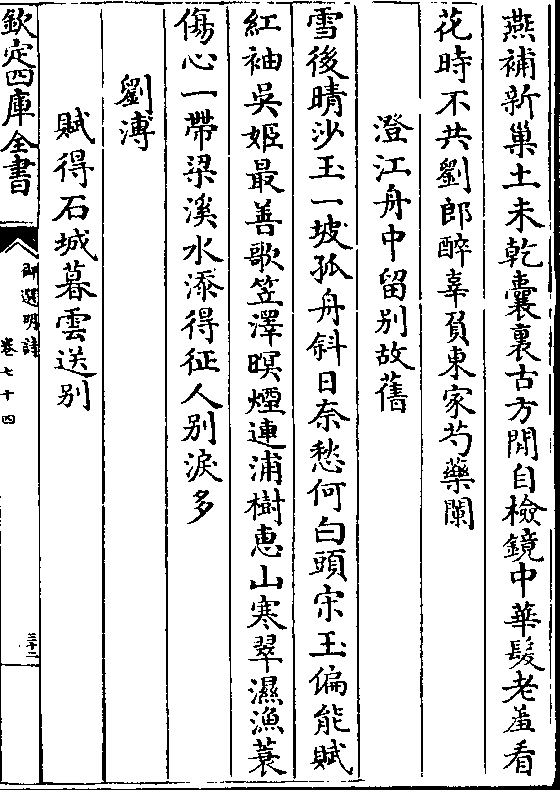 燕補新巢土未乾囊裏古方閒自檢鏡中華髮老羞看
花時不共劉郎醉辜負東家芍藥闌
澄江舟中留别故舊
雪後晴沙玉一坡孤舟斜日奈愁何白頭宋玉偏能賦
紅袖吳姬最善歌笠澤暝煙連浦樹惠山寒翠濕漁蓑
傷心一帶梁溪水添得征人别淚多
劉溥
賦得石城暮雲送别
欽定四庫全書
御選明詩
卷七十四
三十二